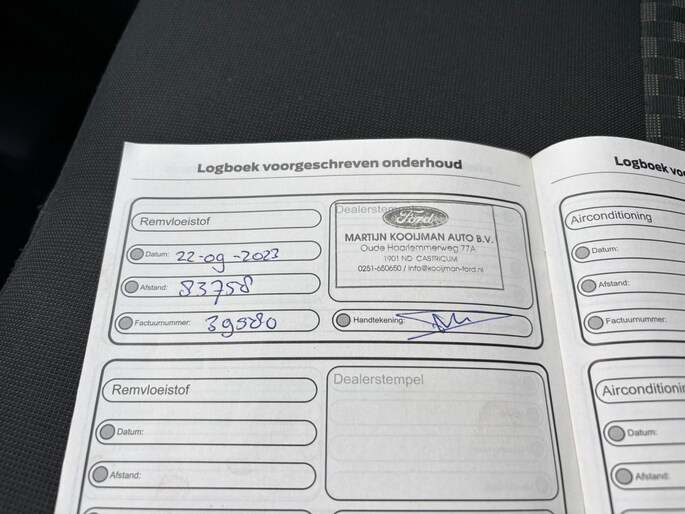 Logboek voorgeschreven onderhoud
Remvloeistof
Datum: 22-09-2023
Afstand: 83758
Factuurnummer: 39580
Dealerstempel
Ford
MARTIJN KOOIJMAN AUTO B.V.
Oude Haarlemmerweg 77A
1901 ND CASTRICUM
0251-650650 / info@kooijman-ford.nl
Handtekening:
Remvloeistof
Datum:
Afstand:
Dealerstempel
Logboek vo
Airconditioning
Datum:
Afstand:
Factuurnummer:
Airconditionin
Datum:
Afstand: